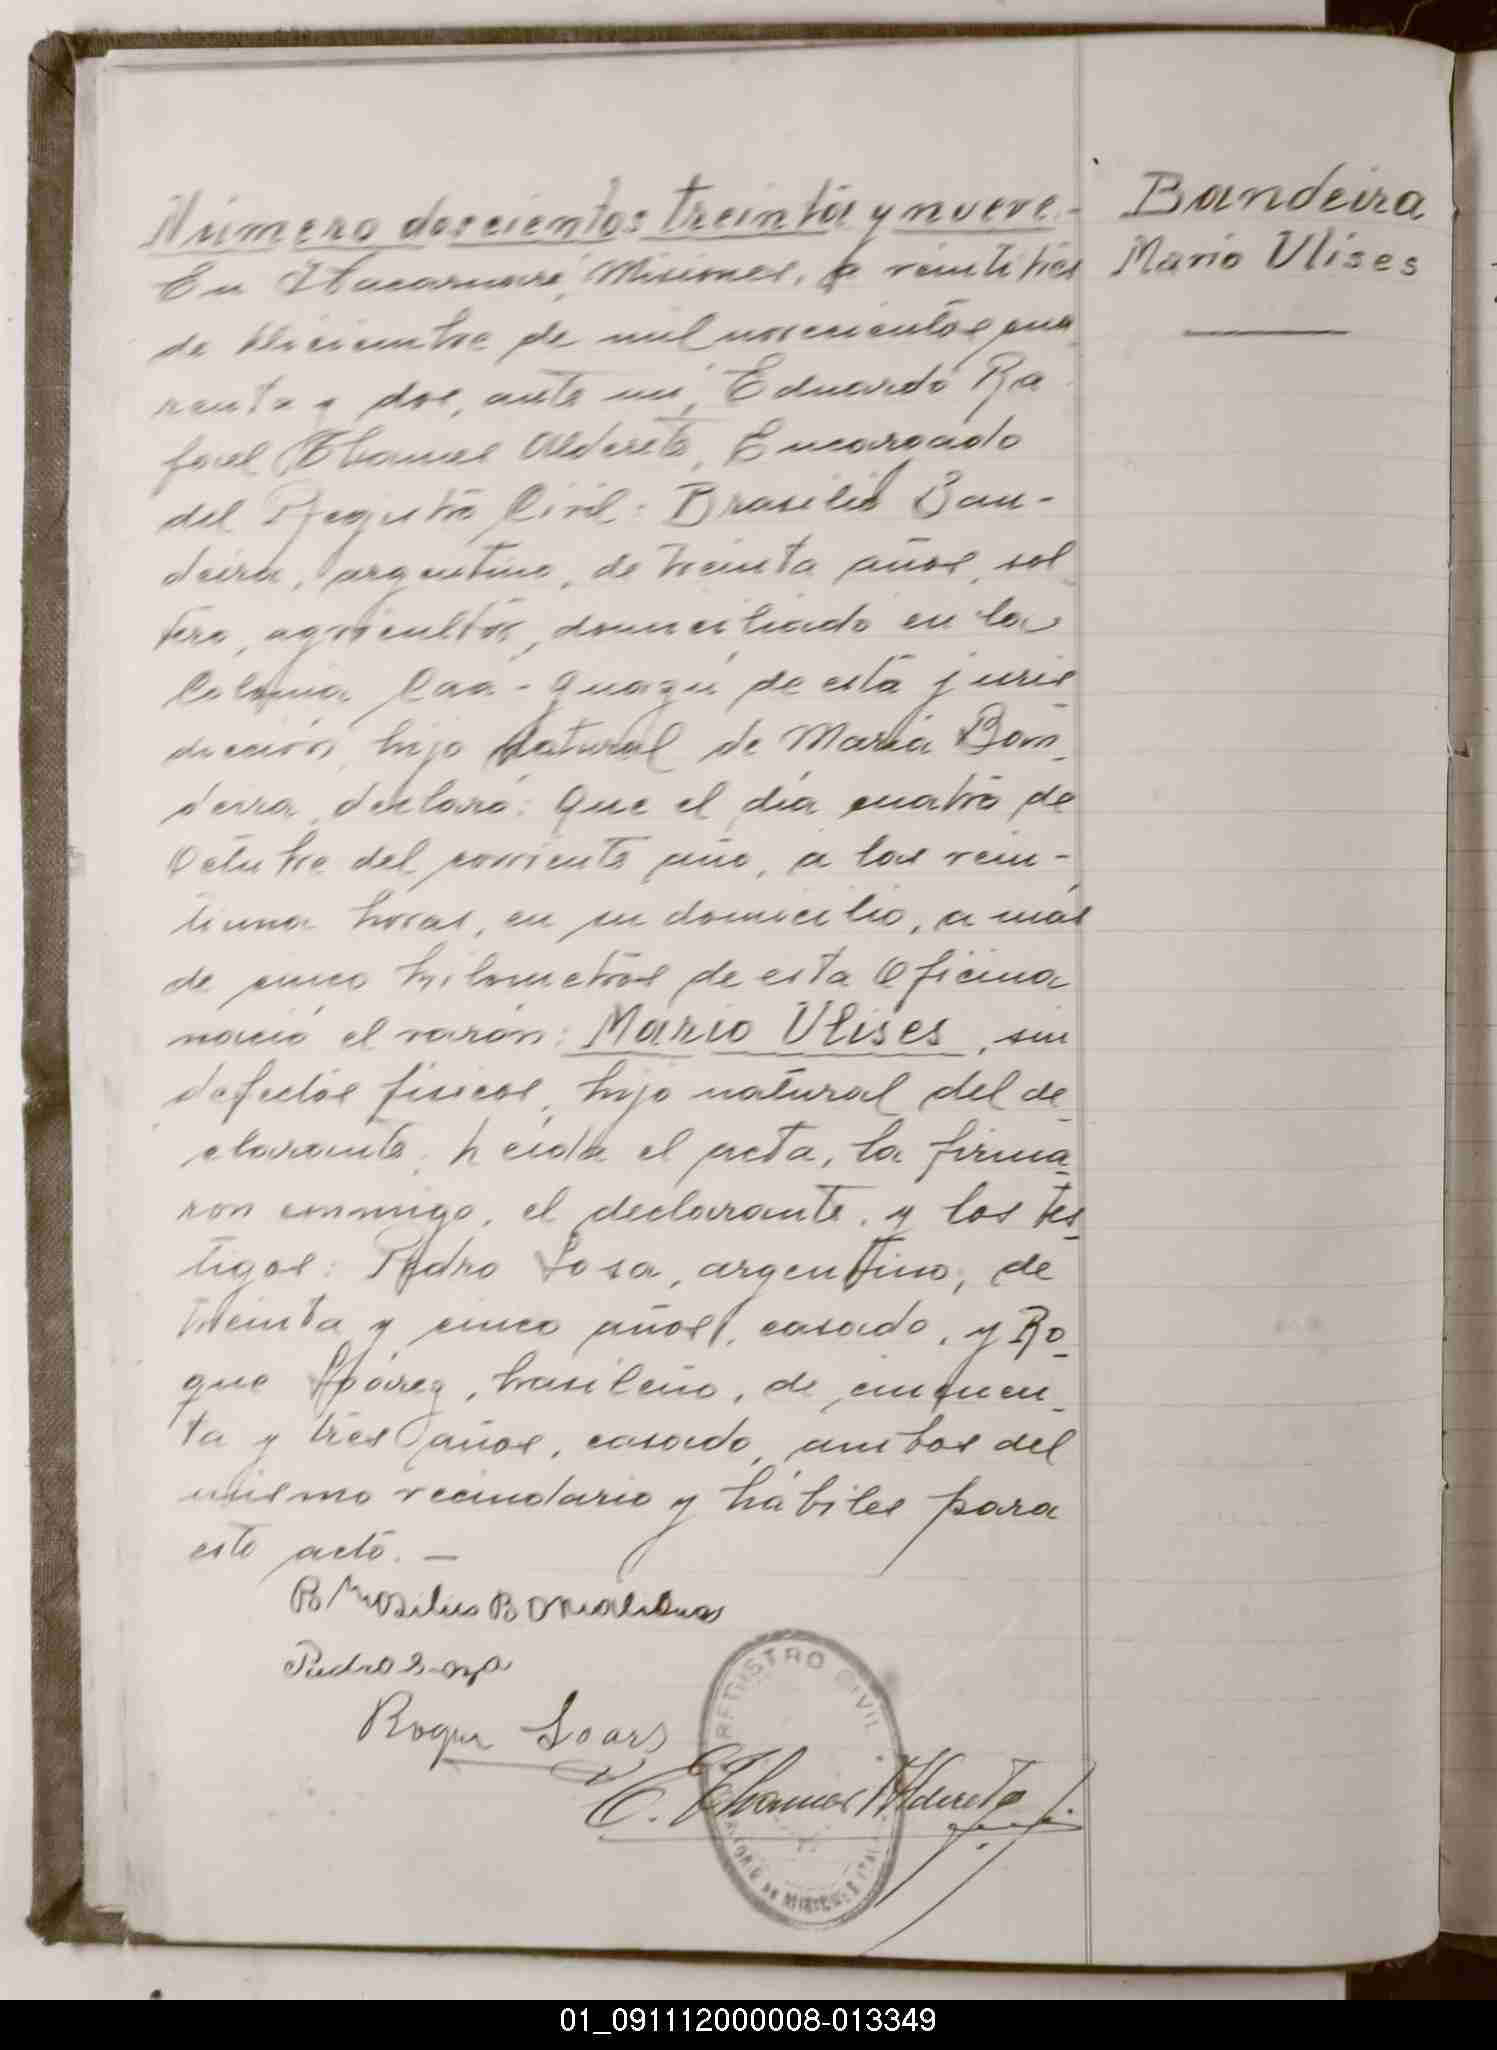 Número doscientos treinta y nueve.-
Bandeira
Mario Ulises
En Itacaruaré, Misiones, a veintitrés
de Diciembre de mil novecientos cua
renta y dos, ante mi, Eduardo Ra
fael Thames Alderete, Encargado
del Registro Civil: Brasilio Ban-
deira, argentino, de treinta años, sol
tero, agricultor, domiciliado en la
Colonia Caá-Guazú de esta juris
dicción, hijo natural de María Ban_
deira, declaró: Que el día cuatro de
Octubre del corriente año, a las vein-
tiuna horas, en su domicilio, a más
de cinco kilometros de esta Oficina
nació el varón: Mario Ulises, sin
defectos físicos, hijo natural del de_
clarante. Leída el acta, la firma_
ron conmigo, el declarante, y los tes_
tigos: Pedro Sosa, argentino, de
treinta y cinco años, casado, y Ro_
que Soárez, brasileño, de cincuen_
ta y tres años, casado, ambos del
mismo vecindario y hábiles para
este acto.—
Pedro Soza
Roque Soares
E. Thames Alderete
REGISTRO CIVIL
DE MISIONES
01_091112000008-013349